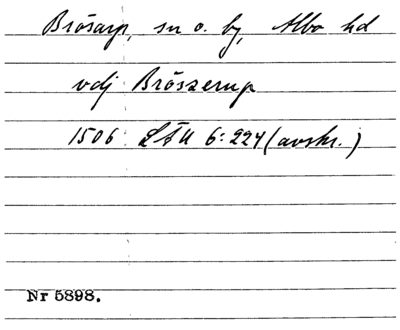 Brösarp, sn o. by, Albo hd
vdj Bröszerup
1506 LÄU 6:224 (avskr.)
Nr 5898.